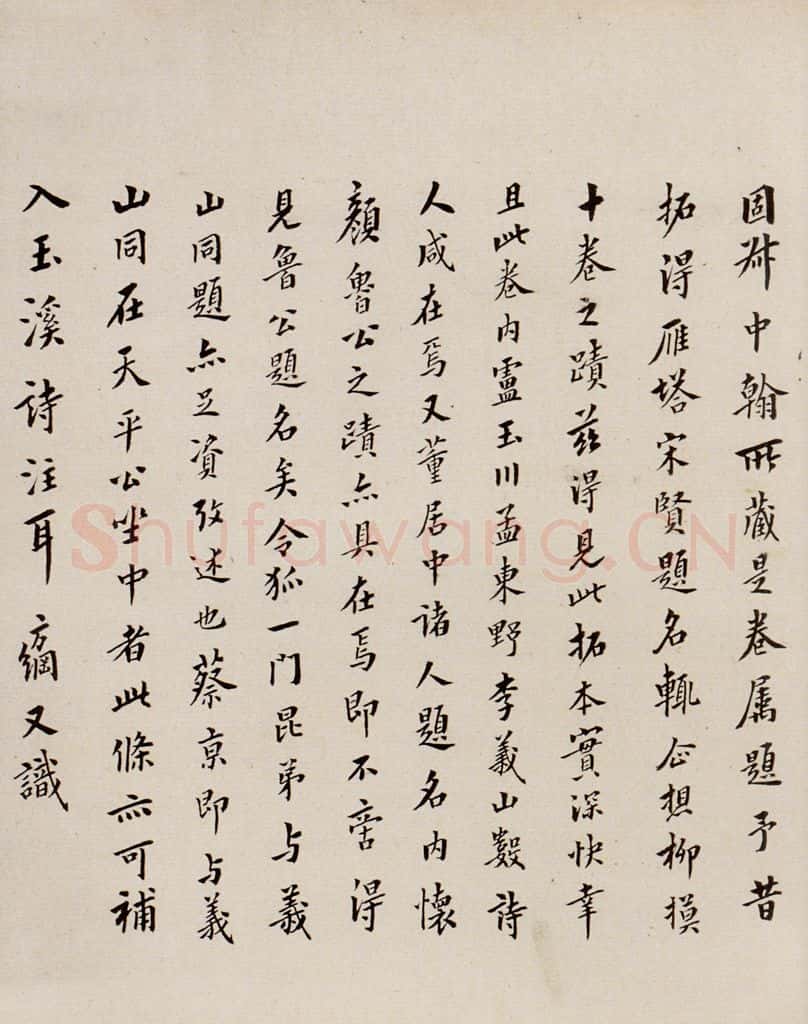 固叔中翰所藏是卷属題予昔
拓得雁塔宋賢題名輒企想柳摸
十卷之蹟兹得見此拓本實深快幸
且此卷内盧玉川孟東野李義山數詩
人咸在焉又董居中諸人題名内懷
顏魯公之蹟亦具在焉即不啻得
見魯公題名矣令狐一門昆弟与義
山同題亦足資攷述也蔡京即与義
山同在天平公坐中者此條亦可補
入玉溪詩注耳 方綱又識
Shufawang.CN